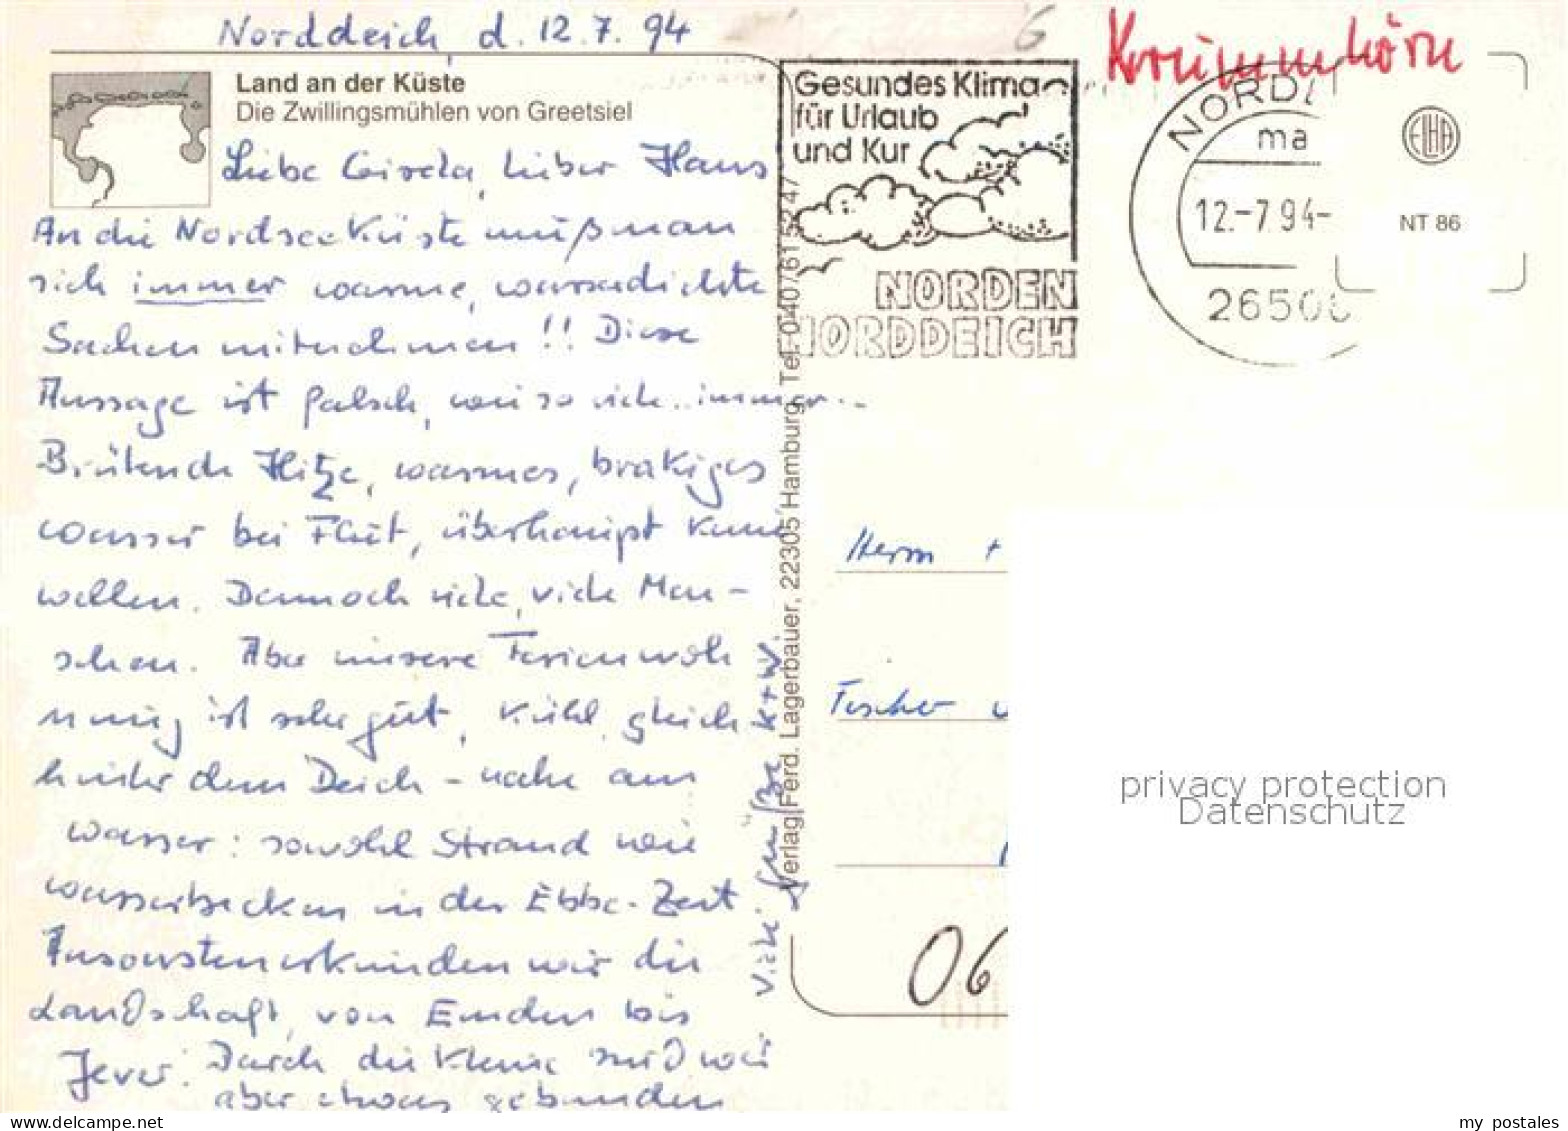 Norddeich, d. 12.7.94
6
Krummhörn
Land an der Küste
Die Zwillingsmühlen von Greetsiel
Liebe Gisela, lieber Hans
An die Nordseeküste muß man
sich immer warme, wasserdichte
Sachen mitnehmen!! Diese
Aussage ist falsch, wie so vieles immer..
Brütende Hitze, warmes, brakiges
Wasser bei Flut, überhaupt keine
Wellen. Dennoch viele, viele Men-
schen. Aber unsere Ferienwoh
nung ist sehr gut, kühl, gleich
hinter dem Deich - nahe am
Wasser: sowohl Strand wie
Wasserbecken in der Ebbe-Zeit
Ansonsten erkunden wir die
Landschaft, von Emden bis
Jever. Durch die Kleine sind wir
aber etwas gebunden
Viele Grüße K+W.
Verlag Ferd. Lagerbauer, 22305 Hamburg, Tel. 040/61 52 47
Gesundes Klima
für Urlaub
und Kur
NORDEN
NORDDEICH
NORD
ma
12.-7.94-
2650
ELHA
NT 86
Herrn +
Fischer
06
privacy protection
Datenschutz
www.delcampe.net
my_postales